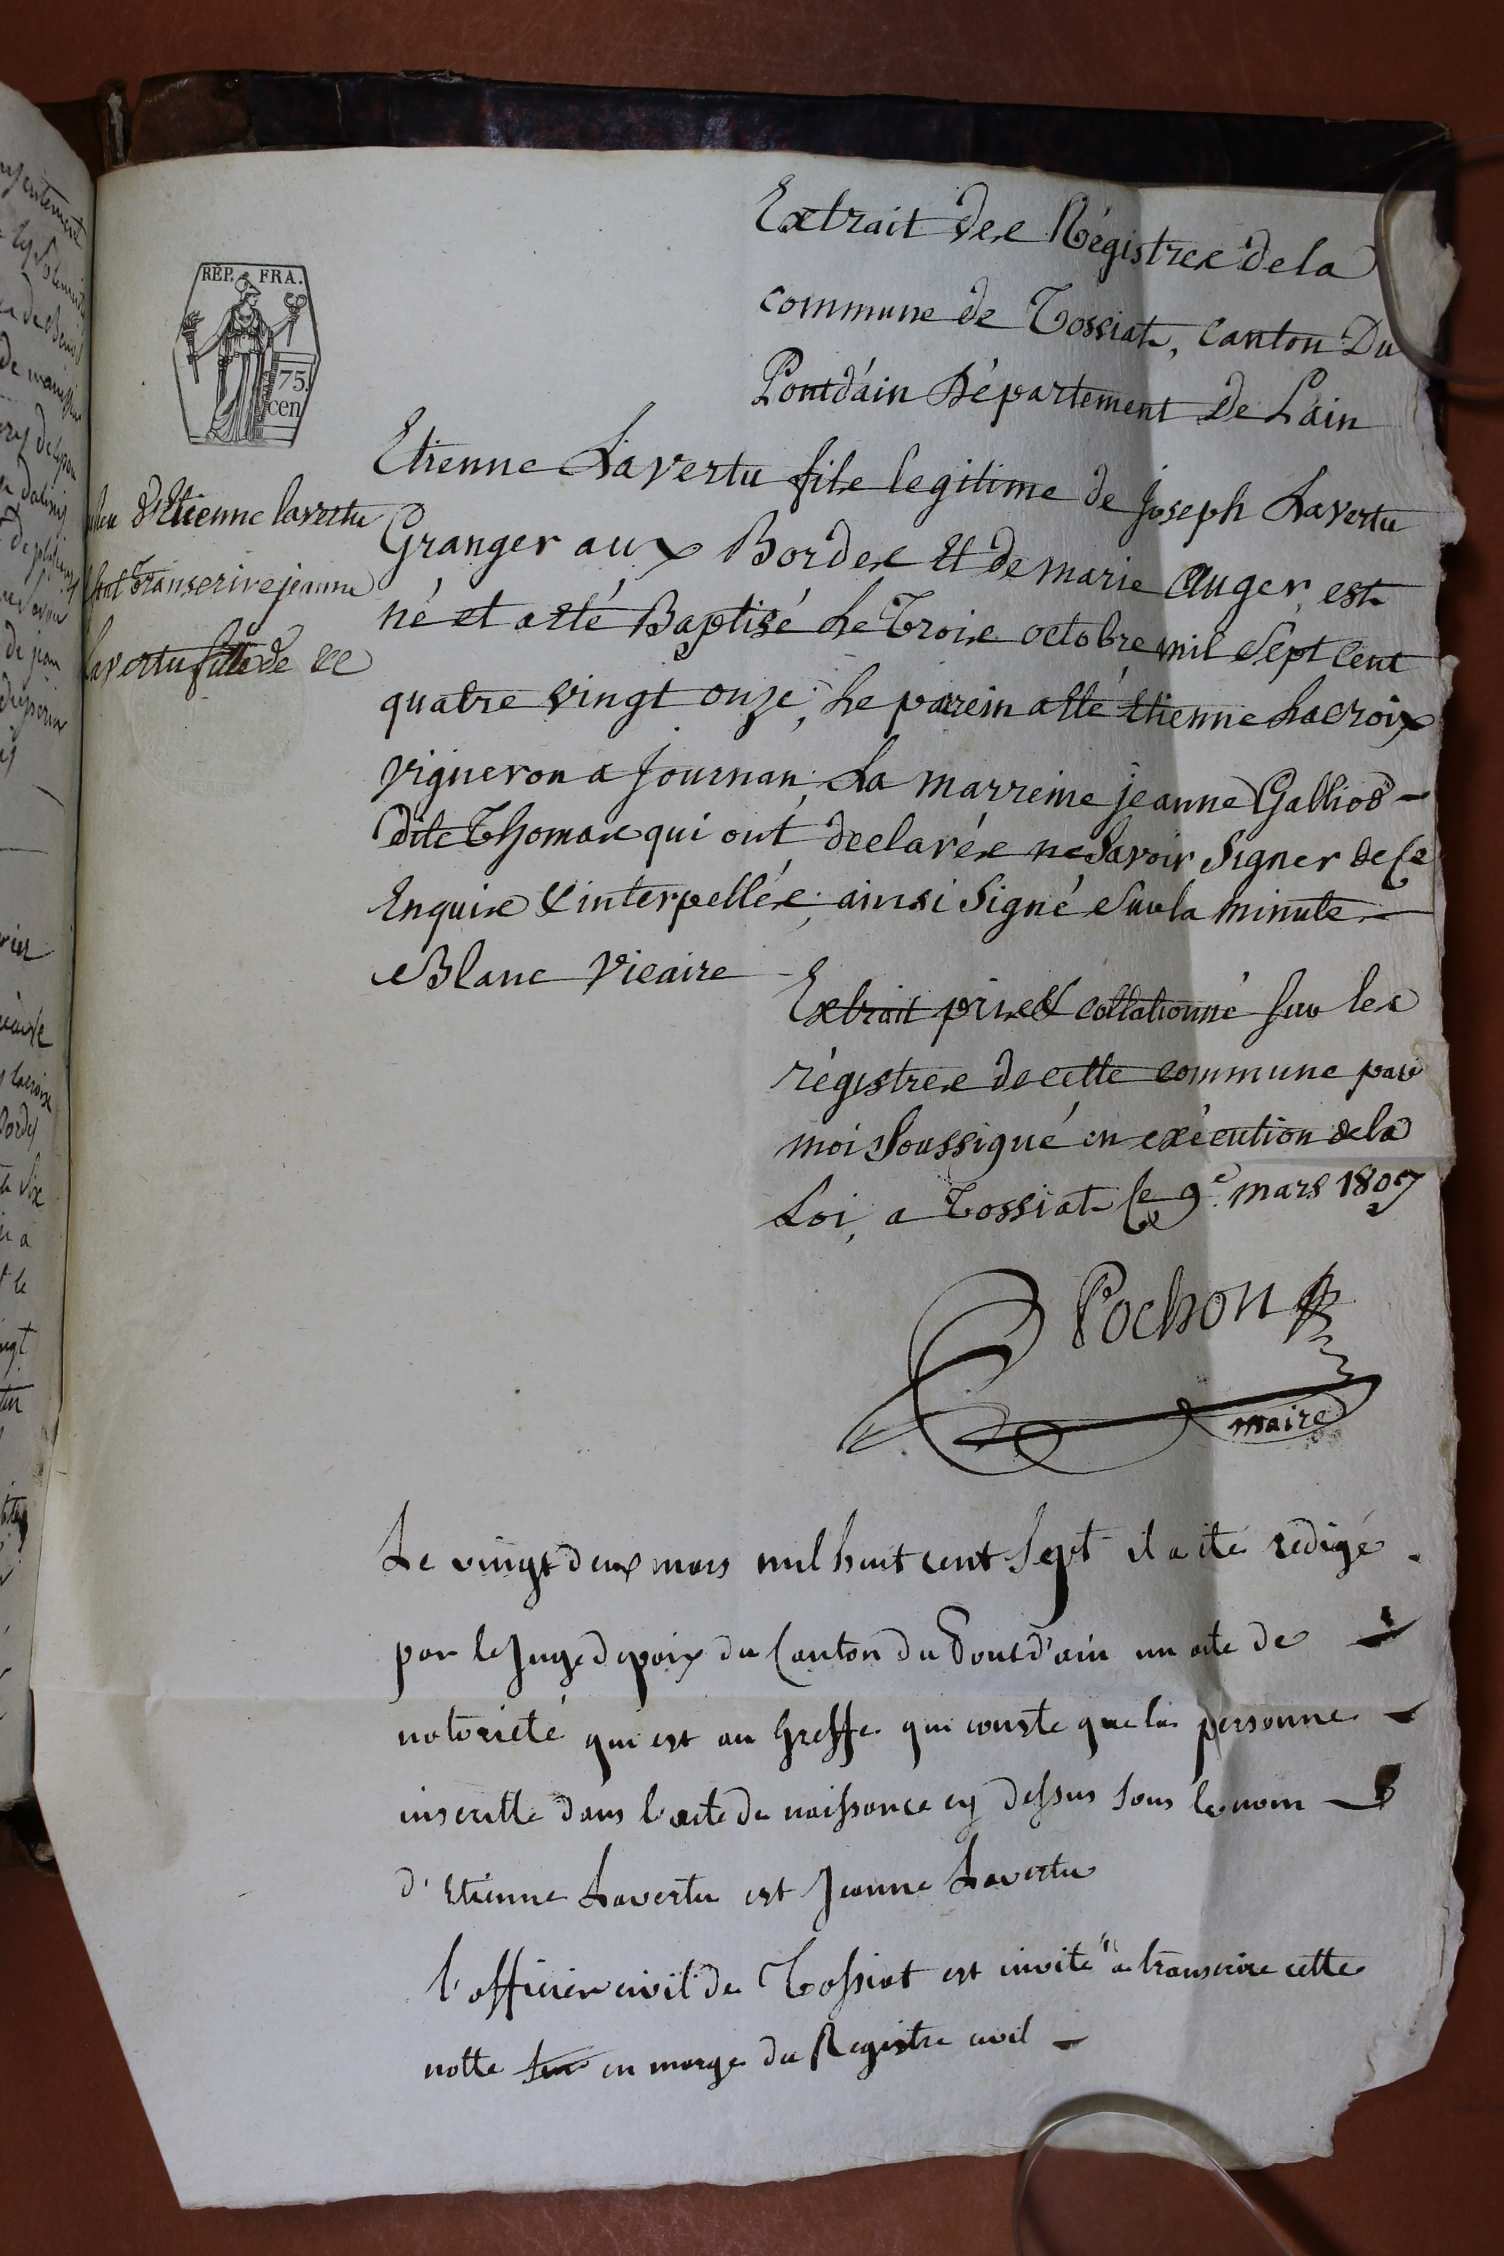 Extrait des Régistres de la
commune de Tossiat, canton Du
Pontd'ain Département De Lain
RÉP. FRA.
75.
cen
Etienne Lavertu fils legitime de joseph Lavertu
Granger aux Bordes Et de marie Auger, est
né et a été Baptisé Le Trois octobre mil Sept Cent
quatre vingt onze, Le parrein a été Etienne Lacroix
vigneron a Journan, La marreine jeanne Galliod
dite Thomas qui ont declarés ne Savoir Signer de Ce
Enquis & interpellés, ainsi Signé Sur la minute
Blanc Vicaire
d'Etienne lavertu
faut transcrire jeanne
Lavertu fille de ec
Extrait pris & collationné Sur les
régistres de cette commune par
moi Soussigné en exécution de la
Loi, a Tossiat Le 9e. mars 1807
Pochon
maire
Le vingt deux mars mil huit cent Sept il a ité redigé
par le Juge de paix du Canton du Pont d'ain un acte de
notorieté qui est au Greffe qui conste que la personne
inscritte dans l'acte de naissance cy dessus sous le nom
d'Etienne Lavertu est Jeanne Lavertu
l'officier civil de Tossiat est invité a transcrire cette
notte sur en marge du Registre civil